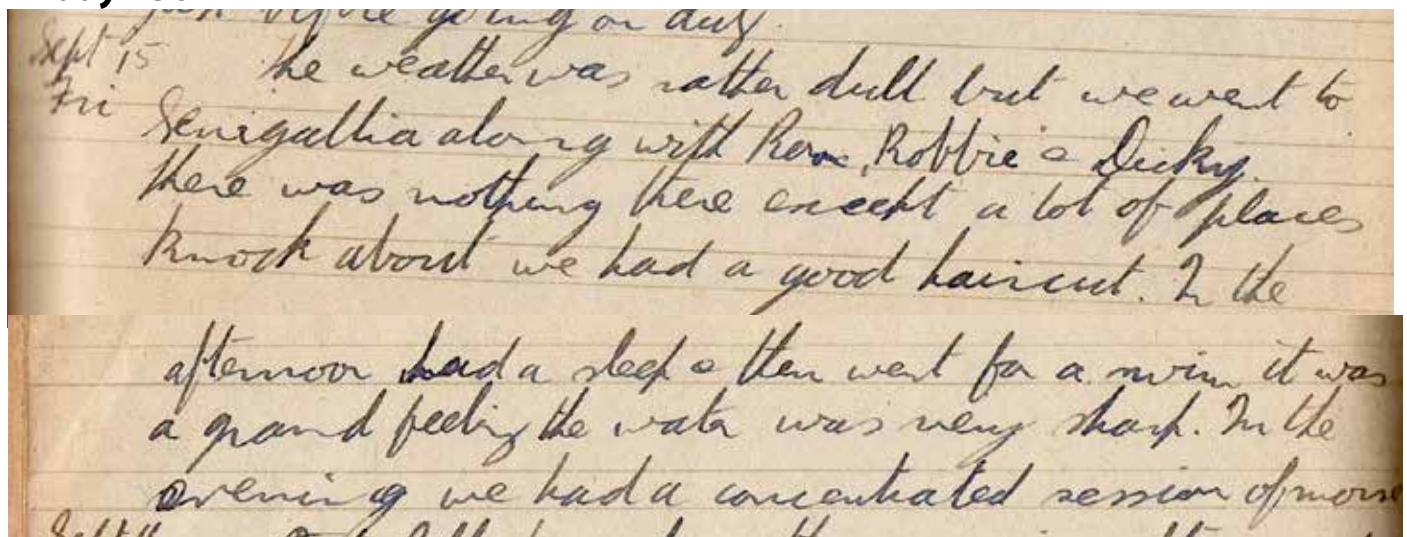 just before going on duty.
Sept 15 The weather was rather dull but we went to
Fri Senigallia along with Ron, Robbie & Dicky.
there was nothing there except a lot of places
knock about we had a good haircut. In the
afternoon had a sleep & then went for a swim it was
a grand feeling the water was very sharp. In the
evening we had a concentrated session of morse
Sept